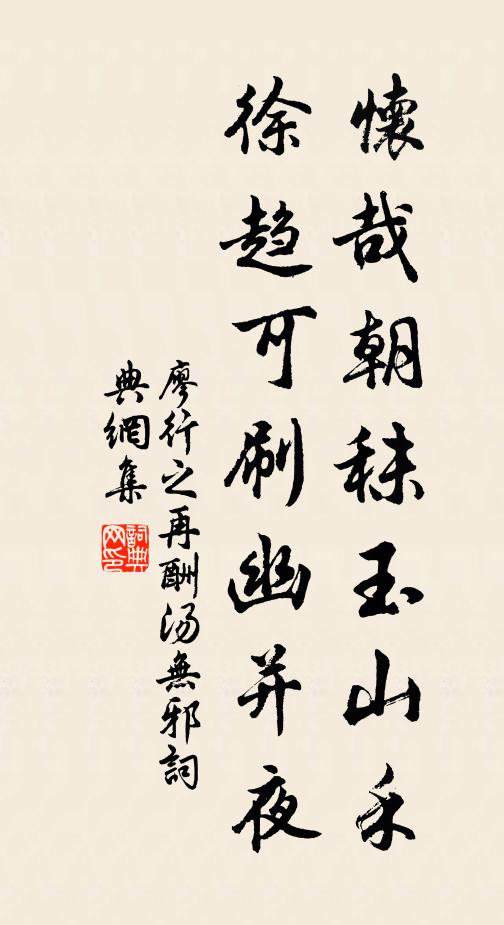 懷哉朝秣玉山禾
徐趋可刷幽并夜
廖行之再酬汤無邪詞
典網集
詞典網印